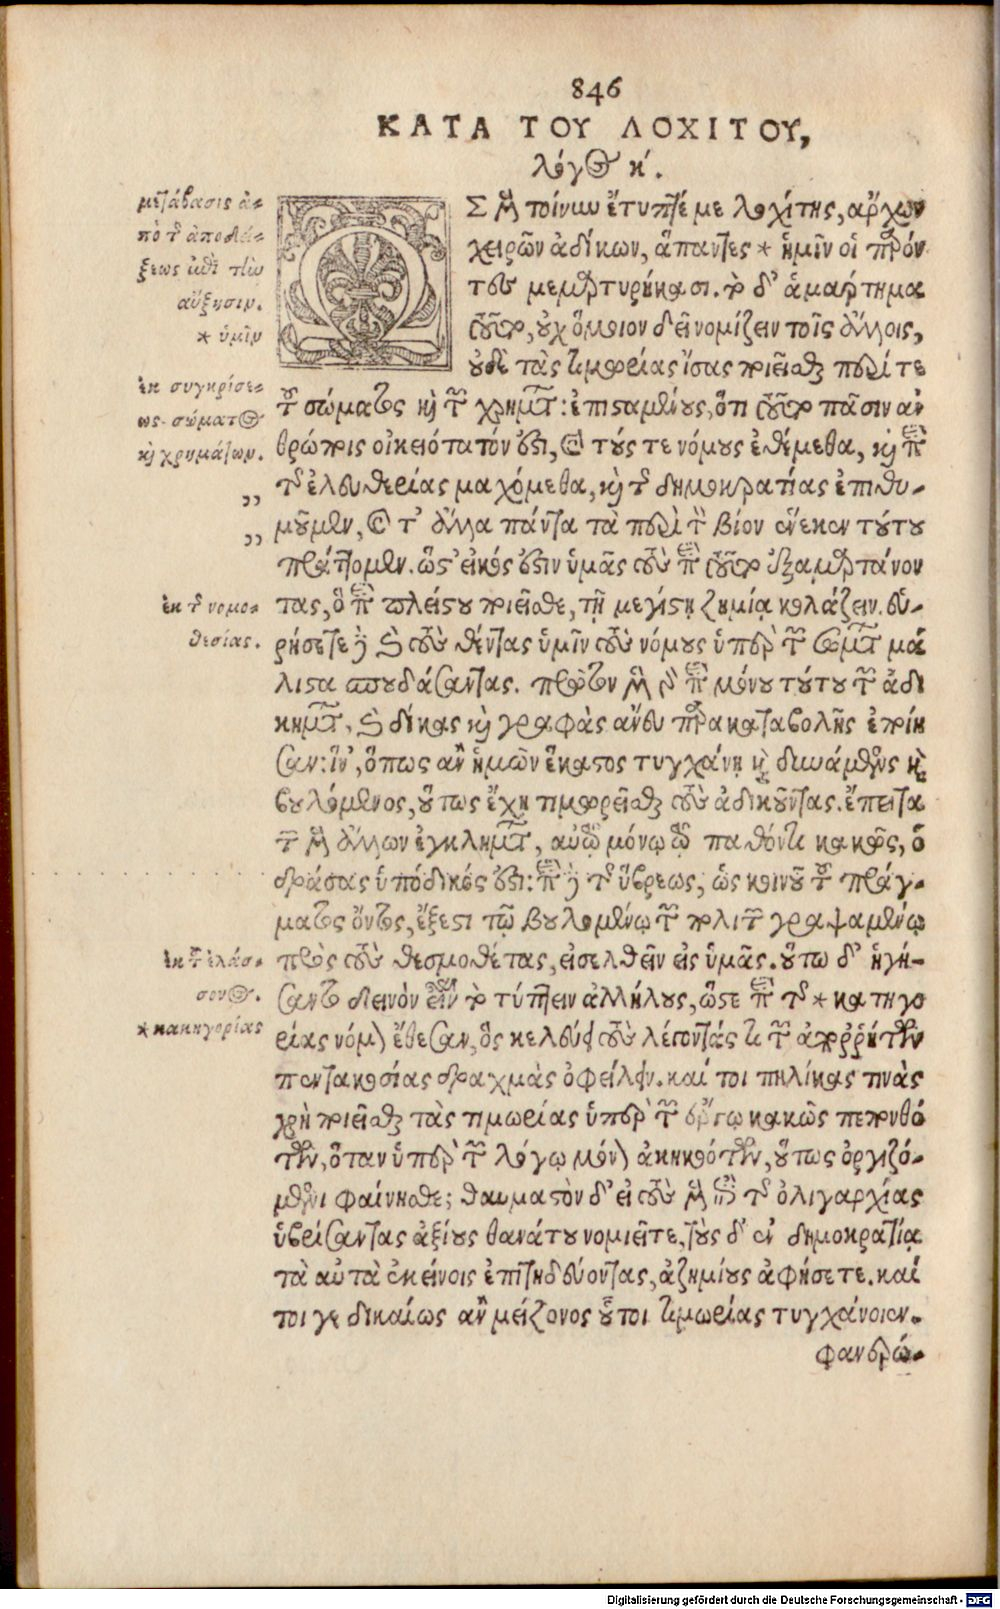 846
ΚΑΤΑ ΤΟΥ ΛΟΧΙΤΟΥ,
λόγος κ΄.
ΩΣ μὲν τοίνυν ἔτυπτέ με λοχίτης, ἄρχων
χειρῶν ἀδίκων, ἅπαντες * ἡμῖν οἱ παρόν-
τες μεμαρτυρήκασι. τὸ δ' ἁμάρτημα
τοῦτο, οὐχ ὅμοιον δεῖ νομίζειν τοῖς ἄλλοις,
οὐδὲ τὰς τιμωρίας ἴσας ποιεῖσθαι περί τε
τοῦ σώματος καὶ τῶν χρημάτων: ἐπισταμένους, ὅτι τοῦτο πᾶσιν ἀν
θρώποις οἰκειότατόν ἐστι, καὶ τούς τε νόμους ἐθέμεθα, καὶ περὶ
τῆς ἐλευθερίας μαχόμεθα, καὶ τῆς δημοκρατίας ἐπιθυ-
μοῦμεν, καὶ τ' ἄλλα πάντα τὰ περὶ τὸν βίον ἕνεκεν τούτου
πράττομεν. ὥστ' εἰκός ἐστιν ὑμᾶς τοὺς περὶ τοῦτο ἐξαμαρτάνον
τας, ὃ περὶ πλείστου ποιεῖσθε, τῇ μεγίστῃ ζημίᾳ κολάζειν. εὑ-
ρήσετε δὲ καὶ τοὺς θέντας ὑμῖν τοὺς νόμους ὑπὲρ τῶν σωμάτων μά
λιστα σπουδάσαντας. πρῶτον μὲν γὰρ περὶ μόνου τούτου τῶν ἀδι
κημάτων, καὶ δίκας καὶ γραφὰς ἄνευ παρακαταβολῆς ἐποίη
σαν: ἵν', ὅπως ἂν ἡμῶν ἕκαστος τυγχάνῃ καὶ δυνάμενος καὶ
βουλόμενος, οὕτως ἔχῃ τιμωρεῖσθαι τοὺς ἀδικοῦντας. ἔπειτα
τῶν μὲν ἄλλων ἐγκλημάτων, αὐτῷ μόνῳ τῷ παθόντι κακῶς, ὁ
δράσας ὑπόδικός ἐστι: περὶ δὲ τῆς ὕβρεως, ὡς κοινοῦ τοῦ πράγ-
ματος ὄντος, ἔξεστι τῷ βουλομένῳ τῶν πολιτῶν γραψαμένῳ
πρὸς τοὺς θεσμοθέτας, εἰσελθεῖν εἰς ὑμᾶς. οὕτω δ' ἡγή-
σαντο δεινὸν εἶναι τὸ τύπτειν ἀλλήλους, ὥστε περὶ τῆς * κατηγο
ρίας νόμον ἔθεσαν, ὃς κελεύει τοὺς λέγοντάς τι τῶν ἀποῤῥήτων
πεντακοσίας δραχμὰς ὀφείλειν. καί τοι πηλίκας τινὰς
χρὴ ποιεῖσθαι τὰς τιμωρίας ὑπὲρ τῶν ἔργῳ κακῶς πεπονθό
των, ὅταν ὑπὲρ τῶν λόγῳ μόνον ἀκηκοότων, οὕτως ὀργιζό-
μενοι φαίνησθε; θαυμαστὸν δ' εἰ τοὺς μὲν ἐπὶ τῆς ὀλιγαρχίας
ὑβρίσαντας ἀξίους θανάτου νομιεῖτε, τοὺς δ' ἐν δημοκρατίᾳ
τὰ αὐτὰ ἐκείνοις ἐπιτηδεύοντας, ἀζημίους ἀφήσετε. καί
τοι γε δικαίως ἂν μείζονος οὗτοι τιμωρίας τυγχάνοιεν.
φανερώ-
μετάβασις ἀ-
πὸ τῆς ἀποδεί-
ξεως ἐπὶ τὴν
αὔξησιν.
* ὑμῖν
ἐκ συγκρίσε-
ως σώματος
καὶ χρημάτων.
,,
,,
ἐκ τῆς νομο-
θεσίας.
ἐκ τοῦ ἐλάσ-
σονος.
* κακηγορίας
Digitalisierung gefördert durch die Deutsche Forschungsgemeinschaft - DFG